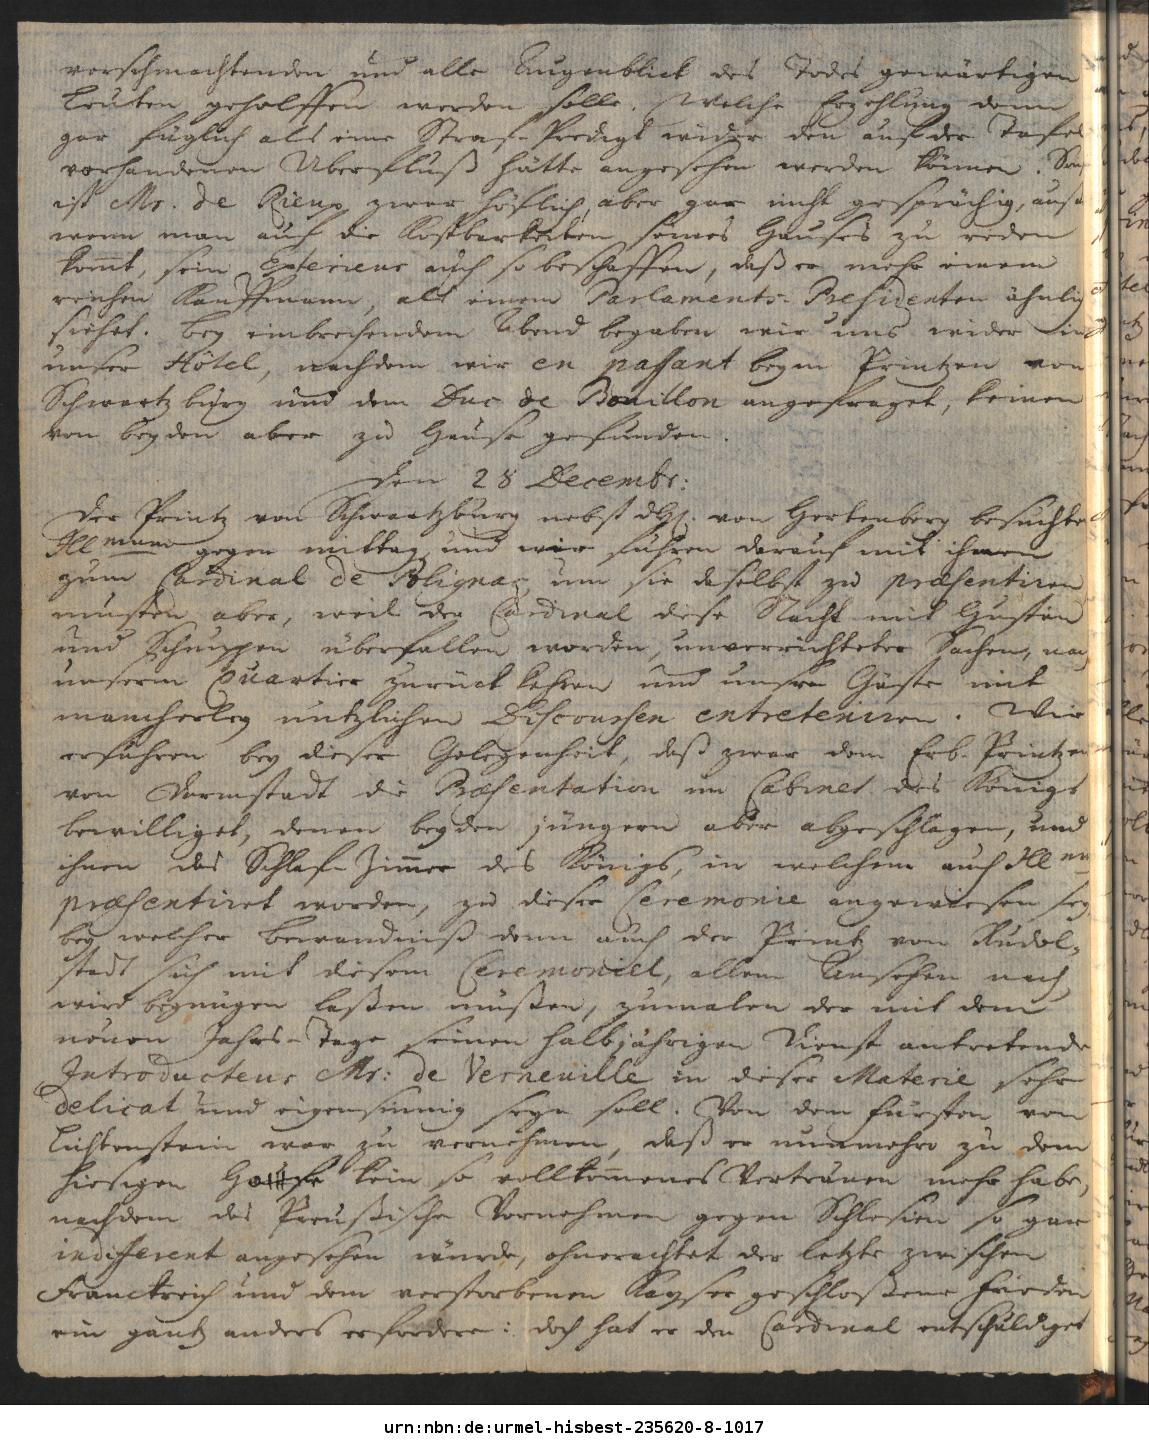 verschmachtenden und alle Augenblick des Todes gewärtigen
Leuten geholffen werden solle. Welche Erzehlung denn
gar füglich als eine Straf-Predigt wider den auf der Tafel
vorhandenen Uberfluß hätte angesehen werden können. Sonst
ist Mr. de Rieux zwar höflich, aber gar nicht gesprächig, außer
wenn man auf die Kostbarkeiten seines Hauses zu reden
kom̄t, sein Exterieur auch so beschaffen, daß er mehr einem
reichen Kauffmann, als einem Parlaments-Presidenten ähnlich
siehet. Bey einbrechendem Abend begaben wir uns wider in
unser Hôtel, nachdem wir en passant beym Printzen von
Schwartzburg und dem Duc de Bouillon angefraget, keinen
von beyden aber zu Hause gefunden.
Den 28 Decembr:
Der Printz von Schwartzburg nebst dH. von Hertenberg besuchte
Illmum gegen mittag, und wir fuhren darauf mit ihnen
zum Cardinal de Polignac, um sie daselbst zu præsentiren
musten aber, weil der Cardinal diese Nacht mit Husten
und Schnuppen überfallen worden, unverrichteter Sachen, nach
unserm Quartier zurück kehren und unsere Gäste mit
mancherley nützlichen Discoursen entreteniren. Wir
erfuhren bey dieser Gelegenheit, daß zwar dem Erb-Printzen
von Darmstadt die Præsentation im Cabinet des Königs
bewilliget, denen beyden jüngern aber abgeschlagen, und
ihnen das Schlaf-Zim̄er des Königs, in welchem auch Illmus
præsentiret worden, zu dieser Ceremonie angewiesen sey
bey welcher Bewandniß denn auch der Printz von Rudol-
stadt sich mit diesem Ceremoniel, allem Ansehen nach,
wird begnügen laßen müßen, zumalen der mit dem
neuen Jahrs-Tage seinen halbjährigen Dienst antretende
Introducteur Mr: de Verneuille in dieser Materie sehr
delicat und eigensinnig seyn soll. Von dem Fürsten von
Lichtenstein war zu vernehmen, daß er nunmehro zu dem
hiesigen Hofe kein so vollkom̄enes Vertrauen mehr habe,
nachdem das Preußische Vornehmen gegen Schlesien so gar
indifferent angesehen würde, ohnerachtet der letzte zwischen
Franckreich und dem verstorbenen Kayser geschloßene Frieden
ein gantz anders erfordere: doch hat er den Cardinal entschuldiget
urn:nbn:de:urmel-hisbest-235620-8-1017